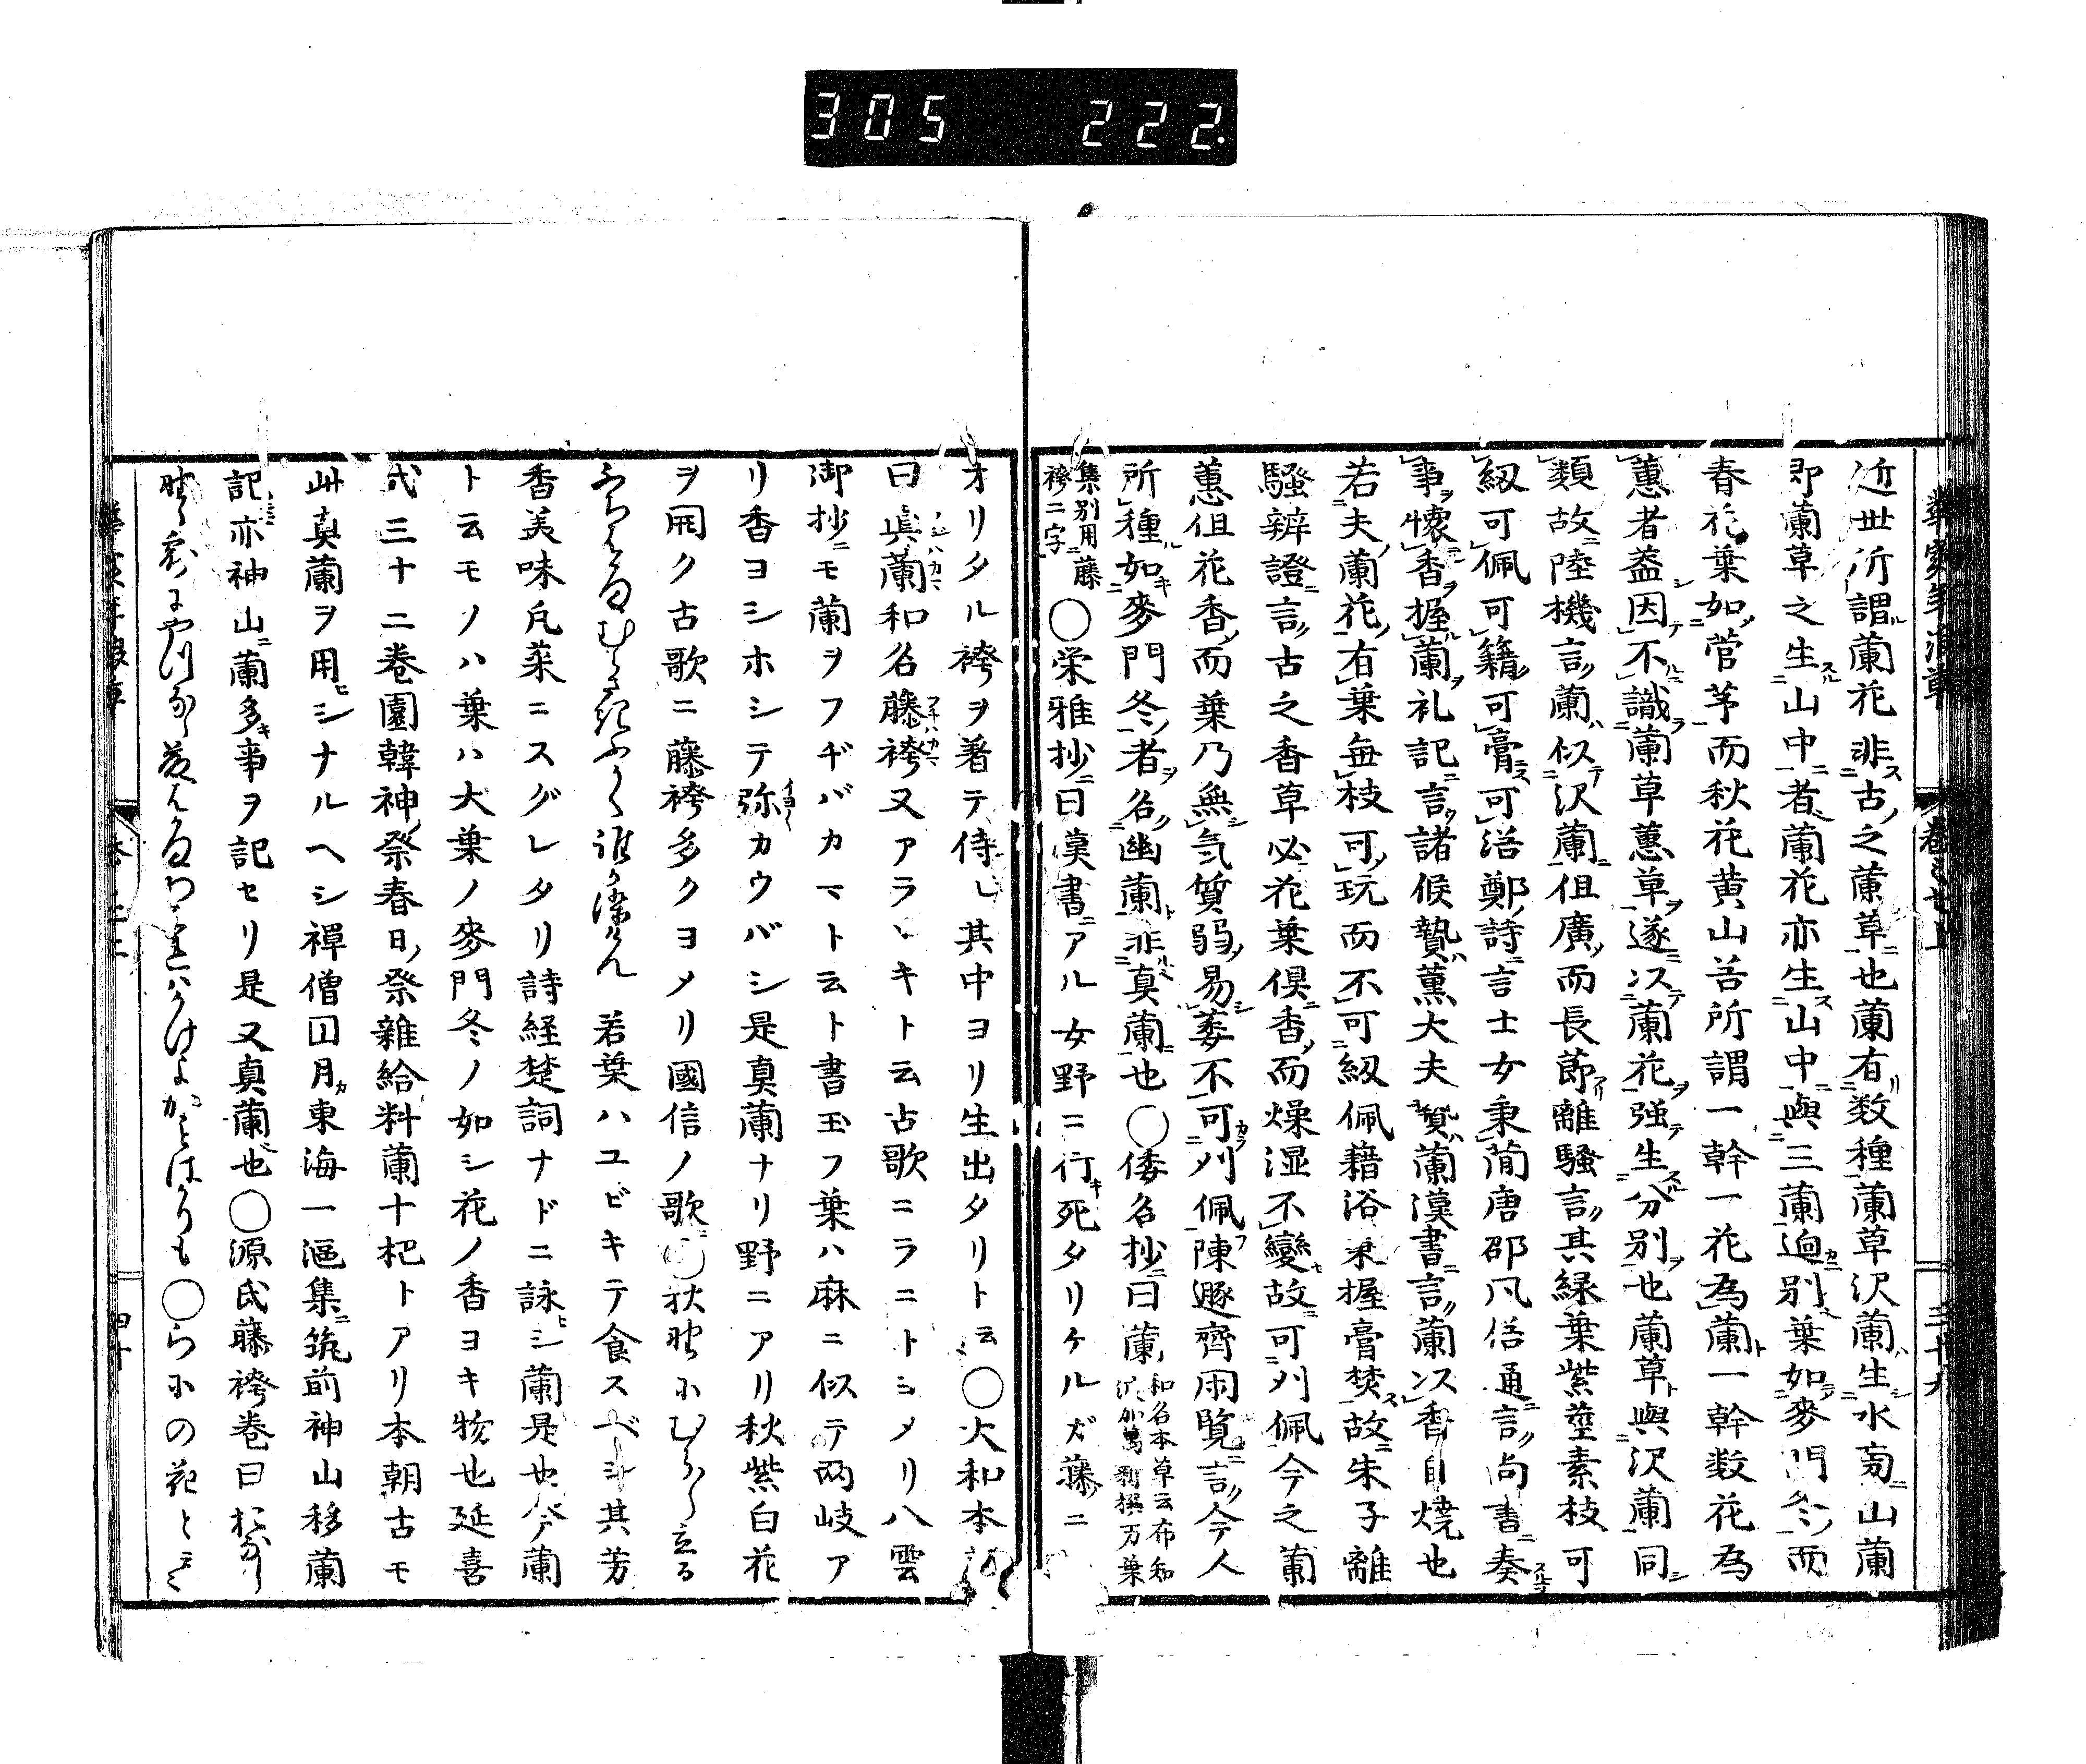 305 222.
近世所謂蘭花非古之蘭草也蘭有数種蘭草沢蘭生水旁山蘭
即蘭草之生山中者蘭花亦生山中與三蘭逈別葉如麥門冬而
春花葉如菅茅而秋花黄山谷所謂一幹一花為蘭一幹数花為
蕙者蓋因不識蘭草蕙草遂以蘭花強生分別也蘭草與沢蘭同
類故陸機言蘭似沢蘭但廣而長節離騒言其緑葉紫莖素枝可
紉可佩可籍可膏可浴鄭詩言士女秉蕑唐邵凡俗通言尚書奏
事懐香握蘭礼記言諸候贄薫大夫贄蘭漢書言蘭以香自焼也
若夫蘭花有葉無枝可玩而不可紉佩藉浴秉握膏焚故朱子離
騒辨證言古之香草必花葉倶香而燥湿不變故可刈佩今之蘭
蕙但花香而葉乃無気質弱易萎不可刈佩陳遯齊閑覧言今人
所種如麥門冬者名幽蘭非真蘭也〇倭名抄曰蘭和名本草云布知波加萬新撰万葉
集別用藤袴二字〇栄雅抄曰漢書アル女野ニ行死タリケルガ藤ニ
オリタル袴ヲ著テ侍し其中ヨリ生出タリト云〇大和本草
曰真蘭和名藤袴又アラヽキト云古歌ニラニトヨメリ八雲
御抄ニモ蘭ヲフヂバカマト云ト書玉フ葉ハ麻ニ似テ両岐ア
リ香ヨシホシテ弥カウバシ是真蘭ナリ野ニアリ秋紫白花
ヲ開ク古歌ニ藤袴多クヨメリ國信ノ歌ニ〇秋野にむらむら立る
ふぢばかまむらさきふかく誰か染けん 若葉ハユビキテ食スベシ其芳
香美味凡菜ニスグレタリ詩経楚詞ナドニ詠ヒシ蘭是也今蘭
ト云モノハ葉ハ大葉ノ麥門冬ノ如シ花ノ香ヨキ物也延喜
式三十二巻園韓神祭春日祭雜給料蘭十把トアリ本朝古モ
此真蘭ヲ用ヒシナルヘシ禪僧四月カ東海一漚集ニ筑前神山移蘭
記亦神山ニ蘭多キ事ヲ記セリ是又真蘭也〇源氏藤袴巻曰おなじ
野の露にやつるゝ藤ばかまあはれはかけよかごとばかりも〇らにの花と云